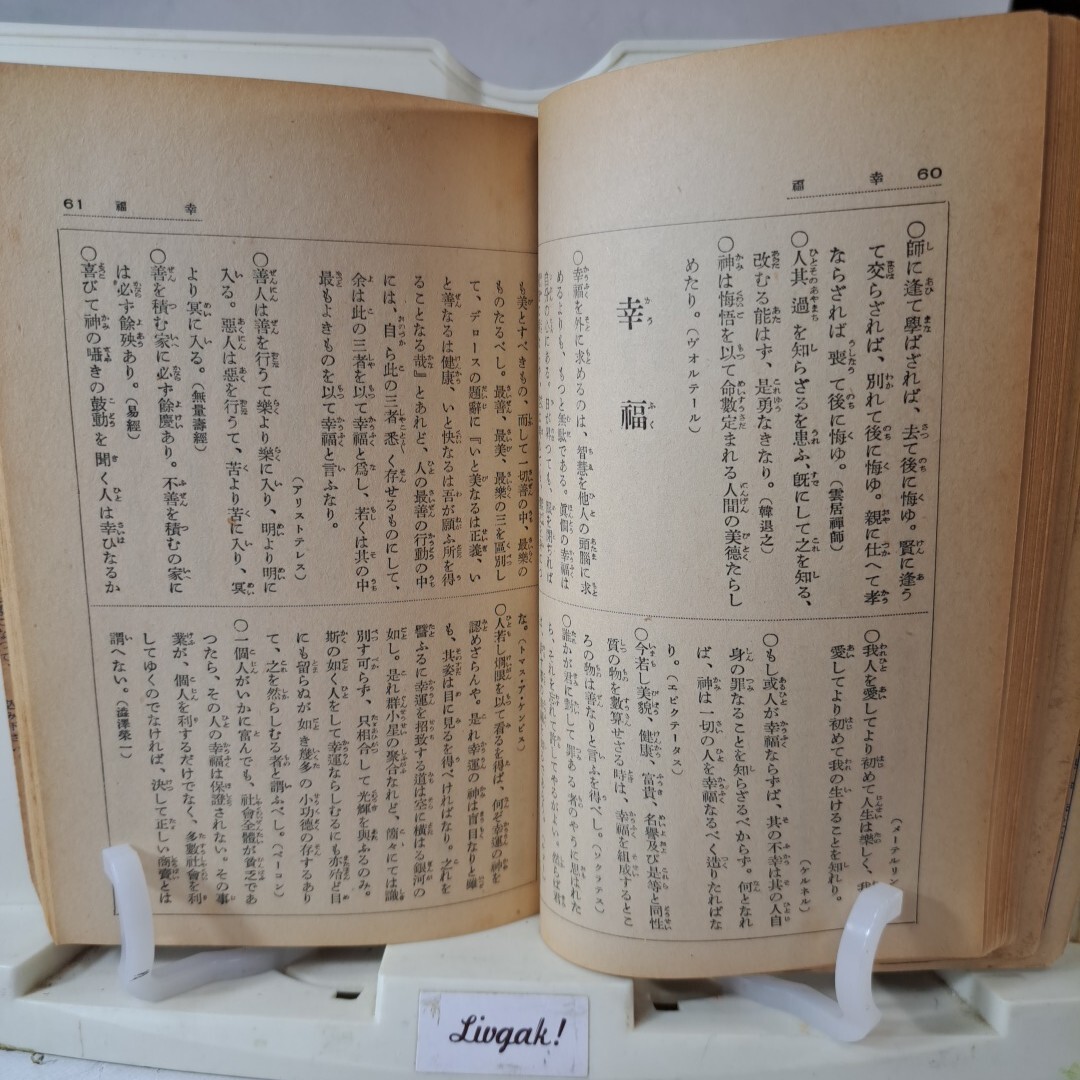 60
幸福
〇師に逢て學ばざれば、去て後に悔ゆ。賢に逢う
て交らざれば、別れて後に悔ゆ。親に仕へて孝
ならざれば喪て後に悔ゆ。(雲居禪師)
〇人其過を知らざるを患ふ、既にして之を知る、
改むる能はず、是勇なきなり。(韓退之)
〇神は悔悟を以て命數定まれる人間の美德たらし
めたり。(ヴォルテール)
幸福
〇幸福を外に求めるのは、智慧を他人の頭腦に求
めるよりも、もつと無駄である。眞個の幸福は
(メーテルリン
〇我人を愛してより初めて人生は樂しく、我
愛してより初めて我の生けることを知れり。
(ケルネル)
〇もし或人が幸福ならずば、其の不幸は其の人自
身の罪なることを知らざるべからず。何となれ
ば、神は一切の人を幸福なるべく造りたればな
り。(エピクテータス)
〇今若し美貌、健康、富貴、名譽及び是等と同性
質の物を數算せざる時は、幸福を組成するとこ
ろの物は善なりと言ふを得べし。(ソクラテス)
〇誰かが君に對して罪ある者のやうに思はれた
ら、それを忘れて許してやるがよい。然らば君
61
幸福
も美とすべきもの、而して一切善の中、最樂の
ものたるべし。最善、最美、最樂の三を區別し
て、デロースの題辭に『いと美なるは正義、い
と善なるは健康、いと快なるは吾が願ふ所を得
ることなる哉』とあれど、人の最善の行動の中
には、自ら此の三者悉く存せるものにして、
余は此の三者を以て幸福と爲し、若くは其の中
最もよきものを以て幸福と言ふなり。
(アリストテレス)
〇善人は善を行うて樂より樂に入り、明より明に
入る。惡人は惡を行うて、苦より苦に入り、冥
より冥に入る。(無量壽經)
〇善を積む家に必ず餘慶あり。不善を積むの家に
は必ず餘殃あり。(易經)
〇喜びて神の囁きの鼓動を聞く人は幸ひなるか
な。(トマス・ア・ケンピス)
〇人若し烱眼を以て看るを得ば、何ぞ幸運の神を
認めざらんや。是れ幸運の神は盲目なりと雖
も、其姿は目に見るを得べければなり。之れを
譬ふるに幸運を招致する道は空に橫はる銀河の
如し。是れ群小星の聚合なれど、箇々にては識
別す可らず、只相合して光輝を與ふるのみ。
斯の如く人をして幸運ならしむるにも亦殆ど目
にも留らぬが如き幾多の小功德の存するあり
て、之を然らしむる者と謂ふべし。(ベーコン)
〇一個人がいかに富んでも、社會全體が貧乏であ
つたら、その人の幸福は保證されない。その事
業が、個人を利するだけでなく、多數社會を利
してゆくのでなければ、決して正しい商賣とは
謂へない。(澁澤榮一)
Livgak!